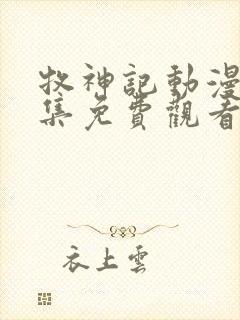 牧神記動漫
集免費觀看
衣上雲